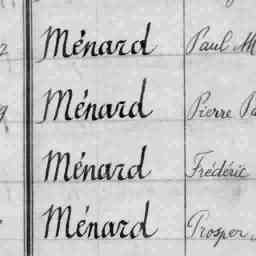 Ménard Paul
Ménard Pierre
Ménard Frédéric
Ménard Prosper